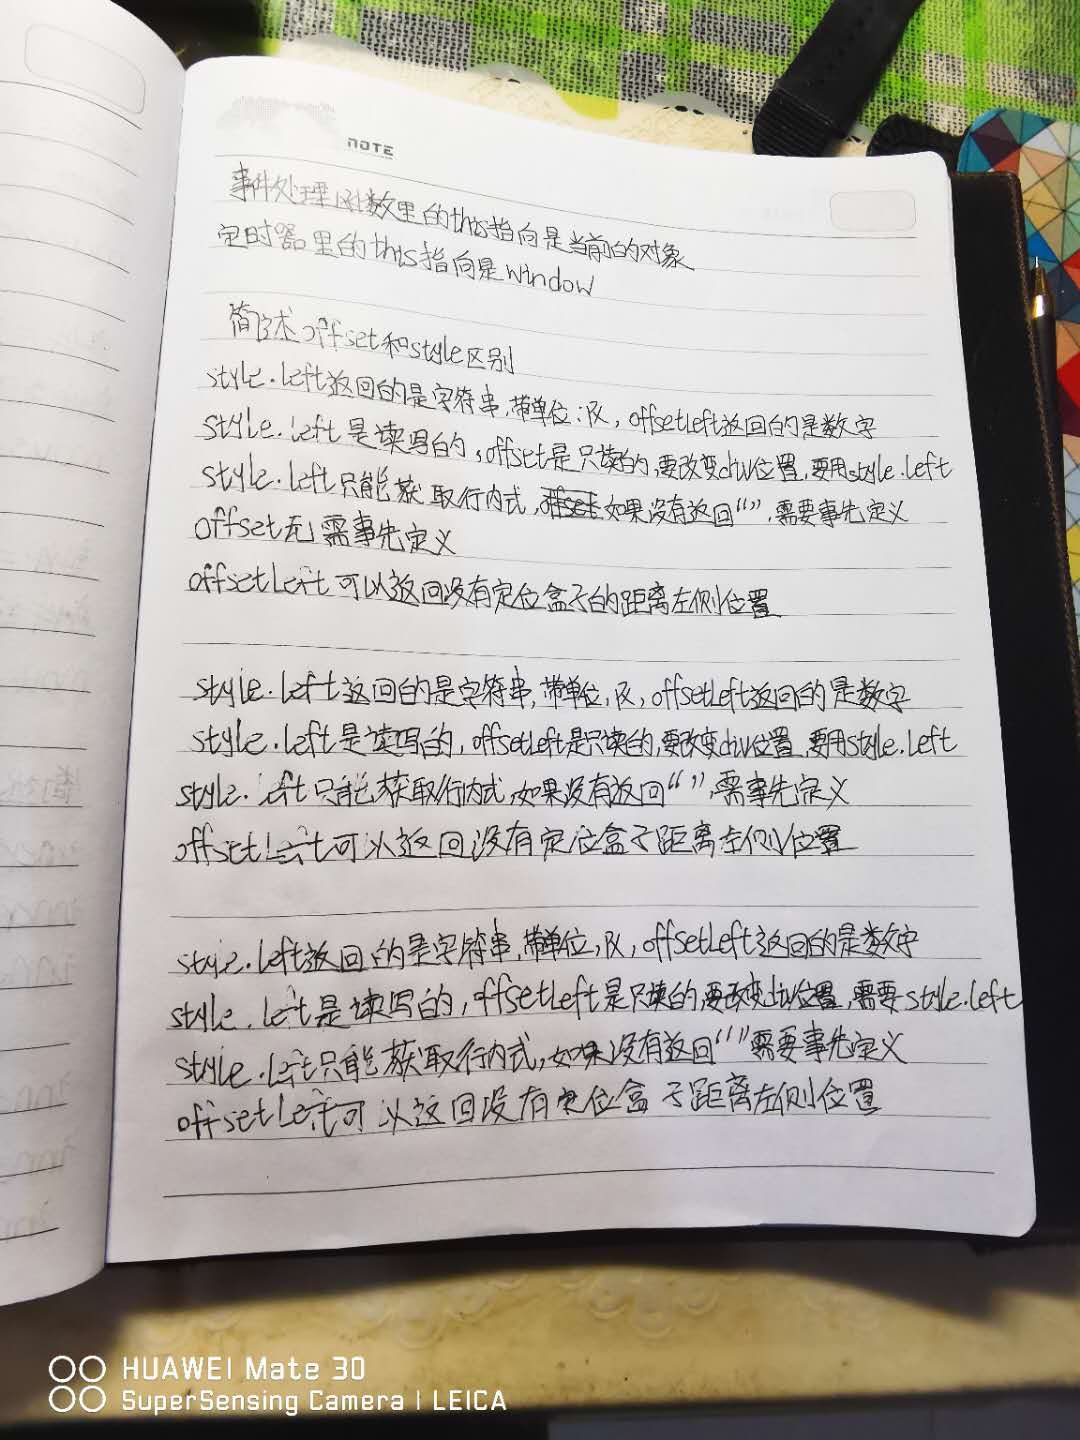 NOTE
事件处理函数里的this指向是当前的对象
定时器里的this指向是window
简述offset和style区别
style.left返回的是字符串,带单位:仅,offsetLeft返回的是数字
style.left是读写的,offset是只读的,要改变div位置,要用style.left
style.left只能获取行内式,如果没有返回“”,需要事先定义
offset无需事先定义
offsetLeft可以返回没有定位盒子的距离左侧位置
style.left返回的是字符串,带单位,仅,offsetLeft返回的是数字
style.left是读写的,offsetLeft是只读的,要改变div位置,要用style.left
style.left只能获取行内式,如果没有返回“”,需事先定义
offsetLeft可以返回没有定位盒子距离左侧位置
style.left返回的是字符串,带单位,仅,offsetLeft返回的是数字
style.left是读写的,offsetLeft是只读的,要改变div位置,需要style.left
style.left只能获取行内式,如果没有返回“”需要事先定义
offsetLeft可以这回没有定位盒子距离左侧位置
HUAWEI Mate 30
SuperSensing Camera | LEICA